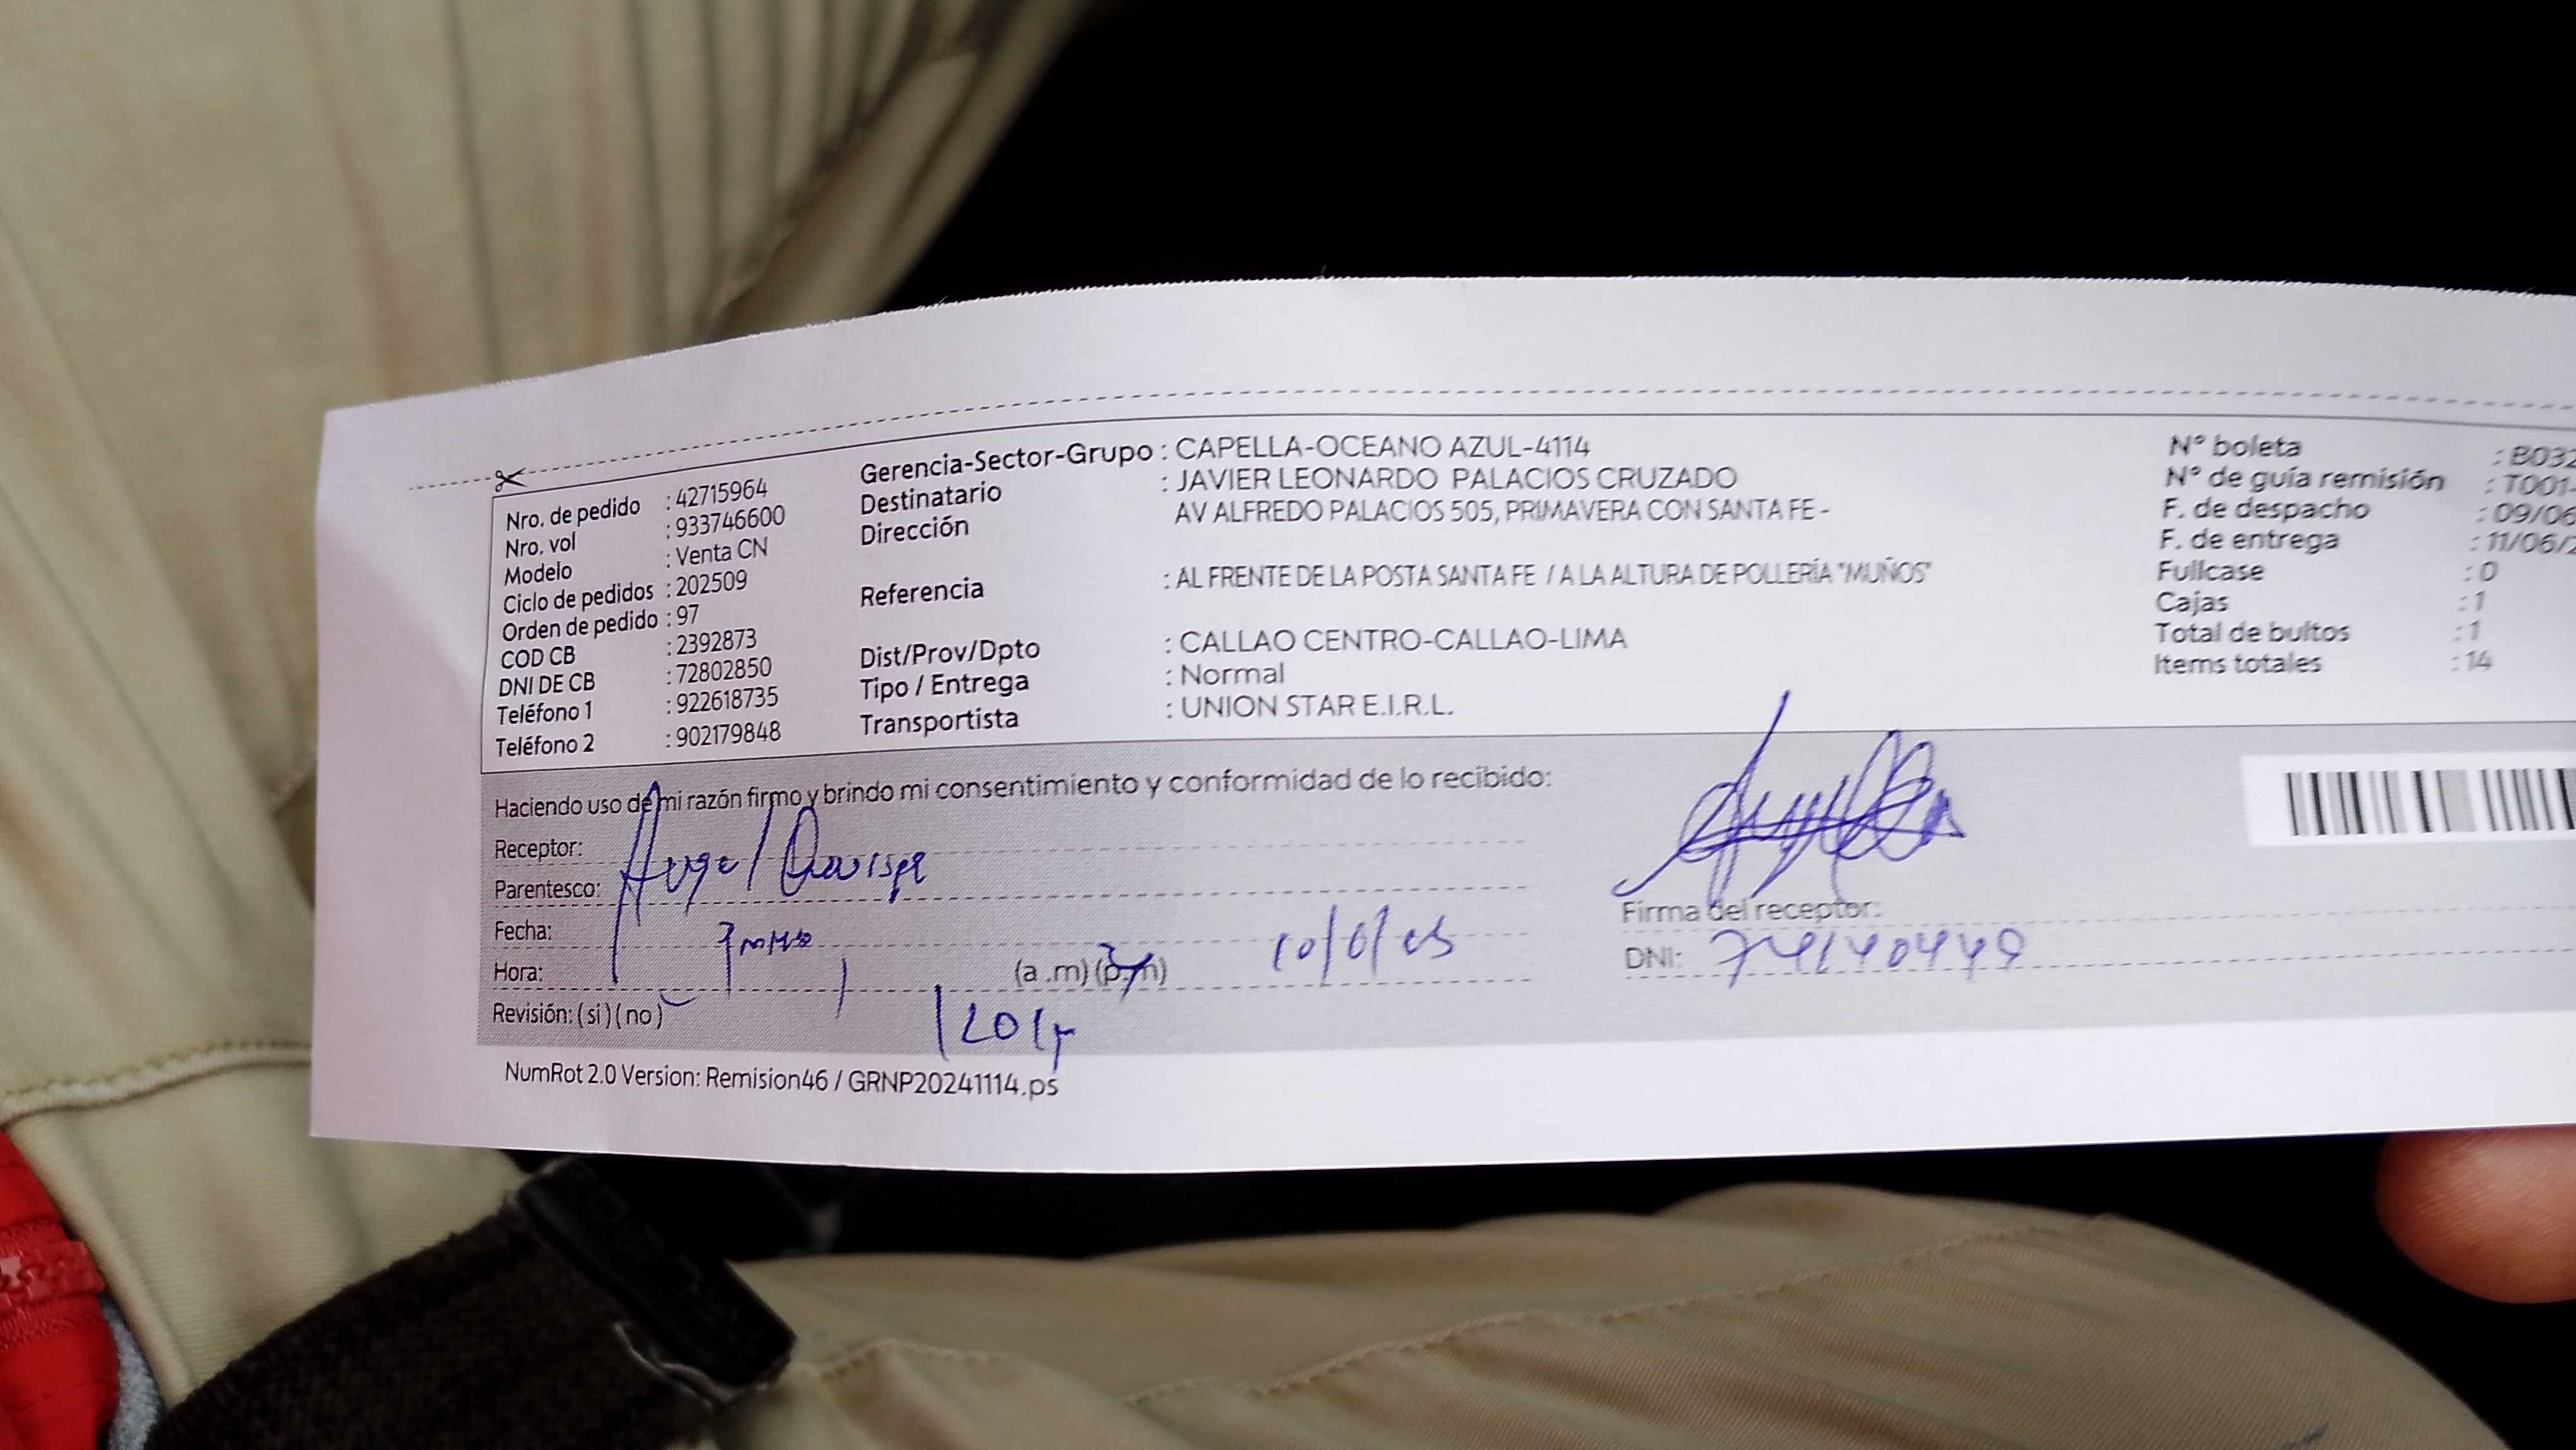 Nro. de pedido : 42715964
Nro. vol : 933746600
Modelo : Venta CN
Ciclo de pedidos : 202509
Orden de pedido : 97
COD CB : 2392873
DNI DE CB : 72802850
Teléfono 1 : 922618735
Teléfono 2 : 902179848
Gerencia-Sector-Grupo : CAPELLA-OCEANO AZUL-4114
Destinatario : JAVIER LEONARDO PALACIOS CRUZADO
Dirección AV ALFREDO PALACIOS 505, PRIMAVERA CON SANTA FE -
Referencia : AL FRENTE DE LA POSTA SANTA FE / A LA ALTURA DE POLLERÍA "MUÑOS"
Dist/Prov/Dpto : CALLAO CENTRO-CALLAO-LIMA
Tipo / Entrega : Normal
Transportista : UNION STAR E.I.R.L.
N° boleta : B032
N° de guía remisión : T001-
F. de despacho : 09/06
F. de entrega : 11/06/2
Fullcase : 0
Cajas : 1
Total de bultos : 1
Items totales : 14
Haciendo uso de mi razón firmo y brindo mi consentimiento y conformidad de lo recibido:
Receptor:
Parentesco: Angel Quispe
Fecha:
Hora: (a .m) (p.m)
Revisión: (si) (no)
Firma del receptor:
DNI:
NumRot 2.0 Version: Remision46 / GRNP20241114.ps